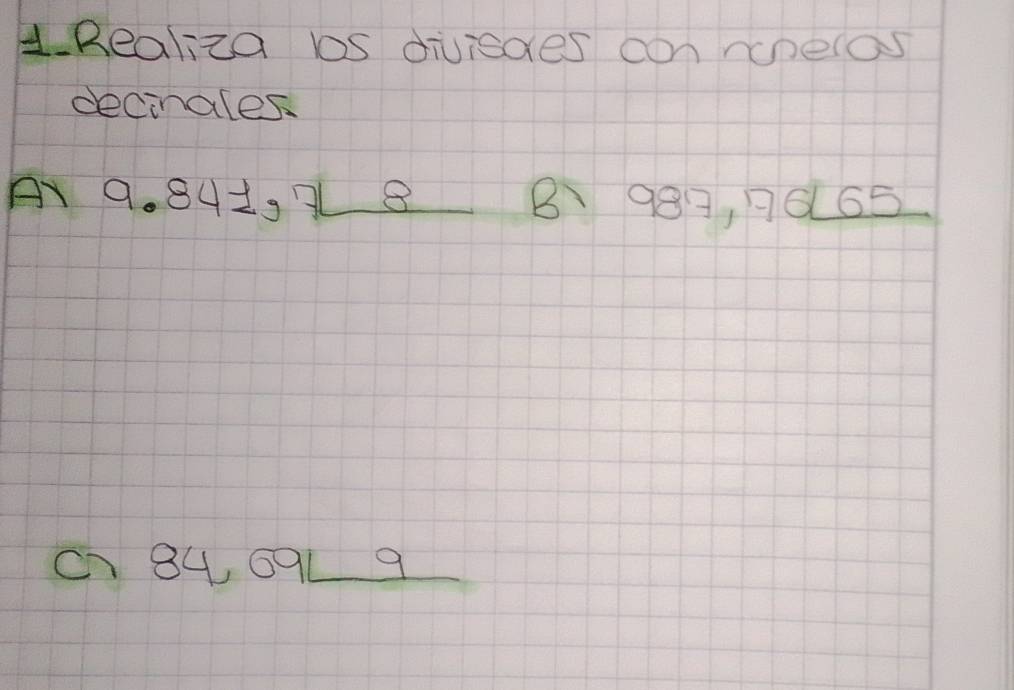 1-Realiza los divisoes con numeros
decimales.
A) 9.841,7 8 B) 987,76 65
C) 84,69 9